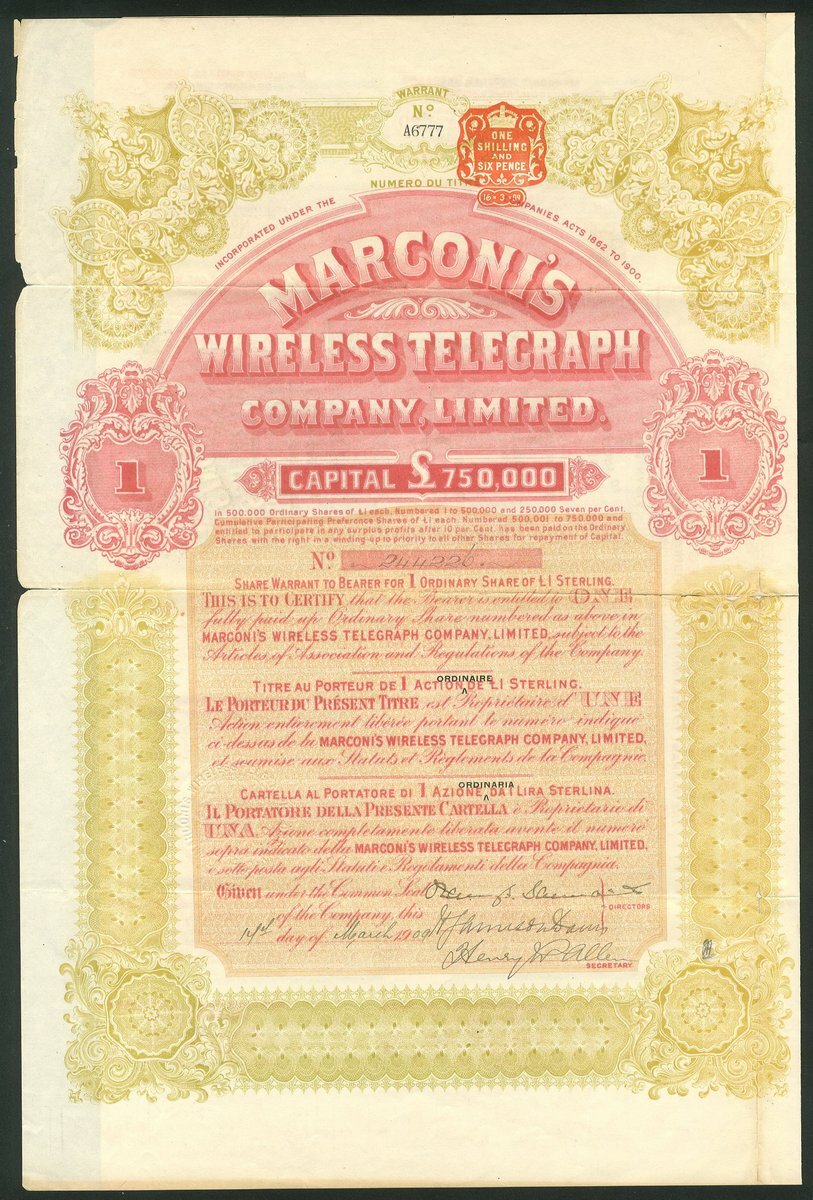 WARRANT
No.
A6777
ONE
SHILLING
AND
SIX PENCE
16·3·09
NUMERO DU
INCORPORATED UNDER THE COMPANIES ACTS 1862 TO 1900.
MARCONI'S
WIRELESS TELEGRAPH
COMPANY, LIMITED.
1
1
CAPITAL £ 750,000
In 500,000 Ordinary Shares of £1 each, Numbered 1 to 500,000 and 250,000 Seven per Cent.
Cumulative Participating Preference Shares of £1 each, Numbered 500,001 to 750,000 and
entitled to participate in any surplus profits after 10 per Cent. has been paid on the Ordinary
Shares with the right in a winding-up to priority to all other Shares for repayment of Capital.
No. 244226
SHARE WARRANT TO BEARER FOR 1 ORDINARY SHARE OF £1 STERLING.
THIS IS TO CERTIFY that the Bearer is entitled to ONE
fully paid up Ordinary Share numbered as above in
MARCONI'S WIRELESS TELEGRAPH COMPANY, LIMITED, subject to the
Articles of Association and Regulations of the Company.
ORDINAIRE
TITRE AU PORTEUR DE 1 ACTION DE £1 STERLING.
LE PORTEUR DU PRÉSENT TITRE est Propriétaire d'UNE
Action entièrement libérée portant le numéro indiqué
ci-dessus de la MARCONI'S WIRELESS TELEGRAPH COMPANY, LIMITED,
et soumise aux Statuts et Règlements de la Compagnie.
ORDINARIA
CARTELLA AL PORTATORE DI 1 AZIONE DA 1 LIRA STERLINA.
IL PORTATORE DELLA PRESENTE CARTELLA è Proprietario di
UNA Azione completamente liberata avente il numero
sopra indicato della MARCONI'S WIRELESS TELEGRAPH COMPANY, LIMITED,
e sottoposta agli Statuti e Regolamenti della Compagnia.
Given under the Common Seal
of the Company, this
DIRECTORS
14th day of March 1909
Henry W Allen
SECRETARY